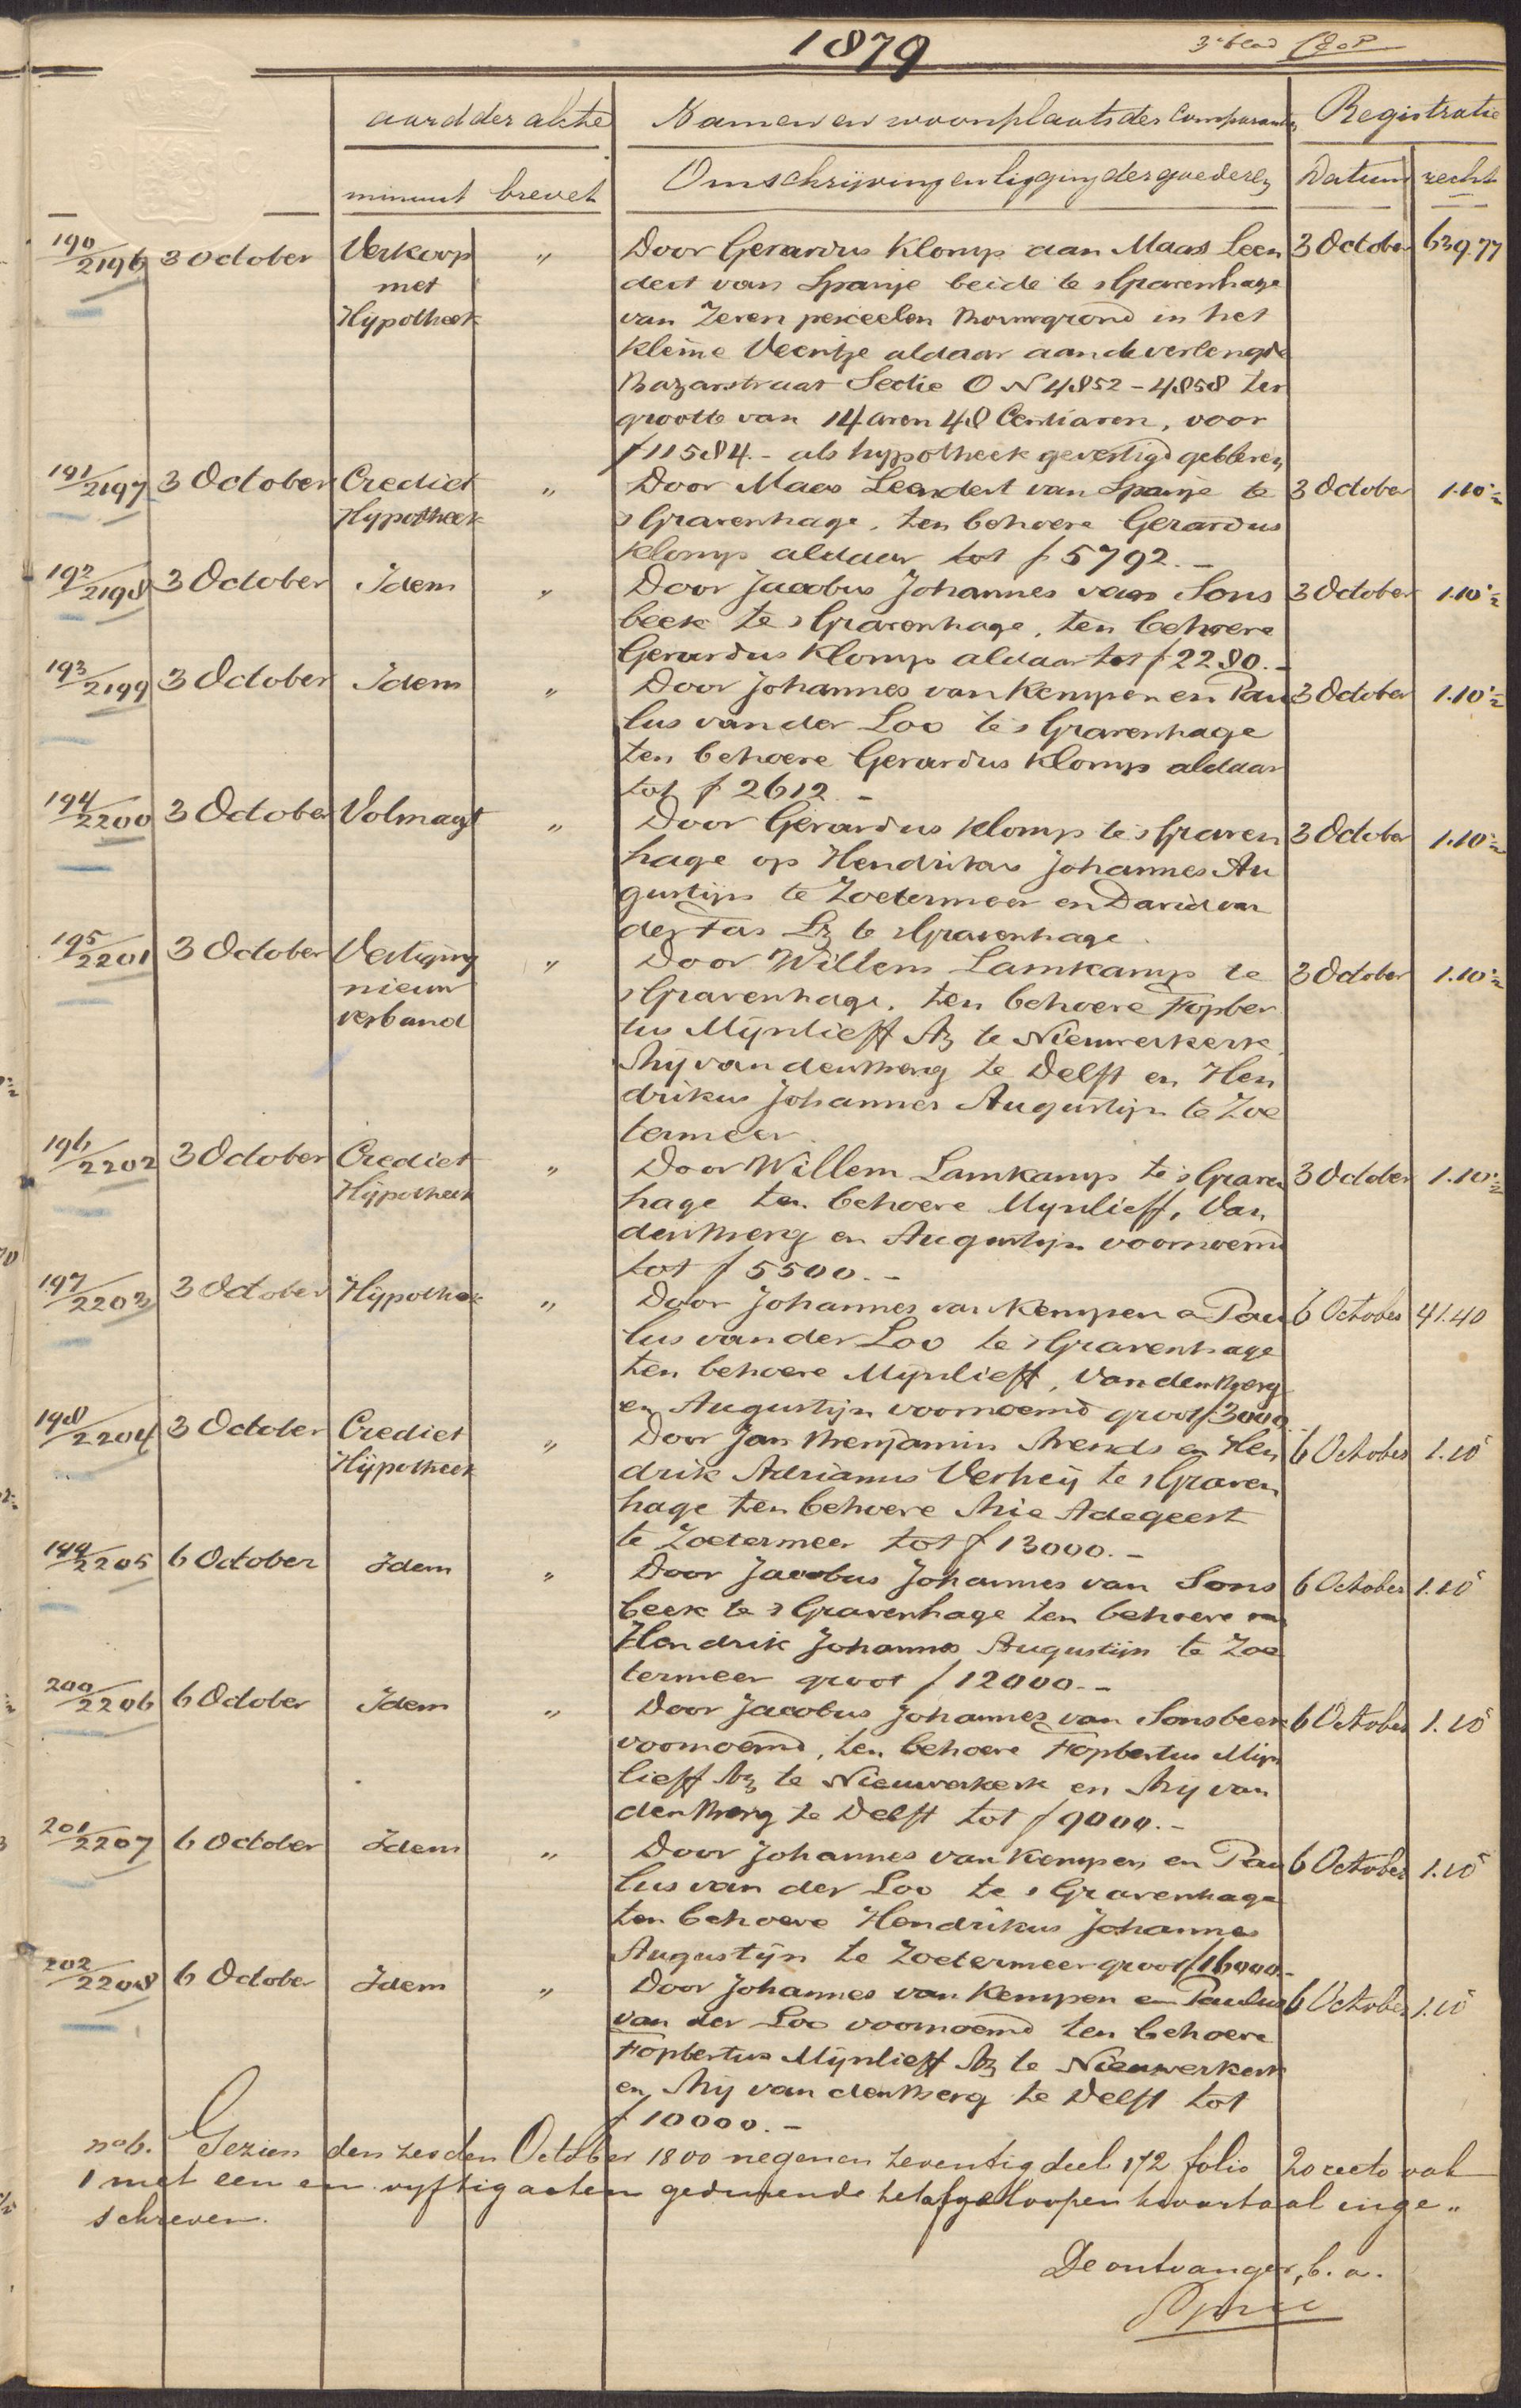 1879
3e blad
aard der akte Namen en woonplaats der Comparanten Registratie
minuut brevet Omschrijving en ligging der goederen Datum recht
190/2196 3 October Verkoop " Door Gerardus Klomp aan Maas Leen 3 October 639.77
met dert van Spanje beide te sGravenhage
Hypotheek van Zeven perceelen Bouwgrond in het
Kleine Veentje aldaar aan de verlengde
Bazarstraat Sectie O N 4852-4858 ter
grootte van 14 aren 48 Centiaren, voor
f 11584.- als hypotheek gevestigd gebleven
191/2197 3 October Crediet " Door Maas Leendert van Spanje te 3 October 1.10½
Hypotheek sGravenhage, ten behoeve Gerardus
Klomp aldaar tot f 5792.-
192/2198 3 October Idem " Door Jacobus Johannes van Sons 3 October 1.10½
beek te sGravenhage, ten behoeve
Gerardus Klomp aldaar tot f 2280.-
193/2199 3 October Idem " Door Johannes van Kempen en Pau 3 October 1.10½
lus van der Loo te sGravenhage
ten behoeve Gerardus Klomp aldaar
tot f 2612.-
194/2200 3 October Volmagt " Door Gerardus Klomp te sGraven 3 October 1.10½
hage op Hendrikus Johannes Au
gustijn te Zoetermeer en David van
der Fas Lz te sGravenhage.
195/2201 3 October Vestiging " Door Willem Lamkamp te 3 October 1.10½
nieuw sGravenhage, ten behoeve Fopber
verband tus Mijnlieff Az te Nieuwerkerk,
Arij van den Berg te Delft en Hen
drikus Johannes Augustijn te Zoe
termeer.
196/2202 3 October Crediet " Door Willem Lamkamp te sGraven 3 October 1.10½
Hypotheek hage ten behoeve Mijnlieff, Van
den Berg en Augustijn voornoemd
tot f 5500.-
197/2203 3 October Hypotheek " Door Johannes van Kempen en Pau 6 October 41.40
lus van der Loo te sGravenhage
ten behoeve Mijnlieff, van den Berg
en Augustijn voornoemd groot f 3000
198/2204 3 October Crediet " Door Jan Benjamin Arends en Hen 6 October 1.10⁵
Hypotheek drik Adrianus Verheij te sGraven
hage ten behoeve Arie Adegeest
te Zoetermeer tot f 13000.-
199/2205 6 October Idem " Door Jacobus Johannes van Sons 6 October 1.10⁵
beek te sGravenhage ten behoeve van
Hendrik Johannes Augustijn te Zoe
termeer groot f 12000.-
200/2206 6 October Idem " Door Jacobus Johannes van Sonsbeek 6 October 1.10⁵
voornoemd, ten behoeve Fopbertus Mijn
lieff Az te Nieuwerkerk en Arij van
den Berg te Delft tot f 9000.-
201/2207 6 October Idem " Door Johannes van Kempen en Pau 6 October 1.10⁵
lus van der Loo te sGravenhage
ten behoeve Hendrikus Johannes
Augustijn te Zoetermeer groot f 16000.-
202/2208 6 October Idem " Door Johannes van Kempen en Paulus 6 October 1.10⁵
van der Loo voornoemd ten behoeve
Fopbertus Mijnlieff Az te Nieuwerkerk
en Arij van den Berg te Delft tot
f 10000.-
no 6. Gezien den zesden October 1800 negen en zeventig deel 172 folio 20 recto vak
1 met een en vyftig acten gedurende het afgeloopen kwartaal inge„
schreven.
De ontvanger, b. a.